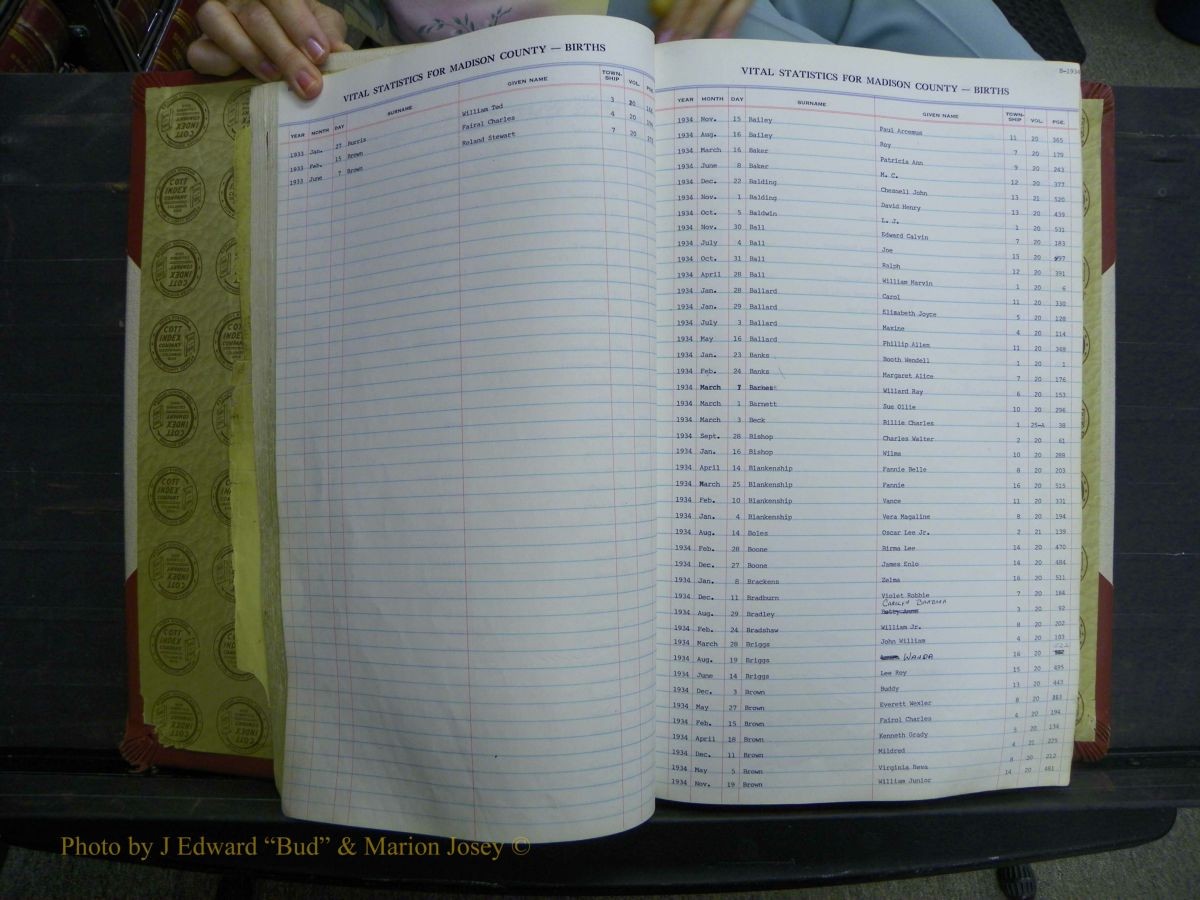 VITAL STATISTICS FOR MADISON COUNTY — BIRTHS
YEAR MONTH DAY SURNAME GIVEN NAME TOWN-SHIP VOL. PGE.
1933 Jan. 27 Burris William Ted 3 20
1933 Feb. 15 Brown Fairal Charles 4 20
1933 June 7 Brown Roland Stewart 7 20
B-1934
VITAL STATISTICS FOR MADISON COUNTY — BIRTHS
YEAR MONTH DAY SURNAME GIVEN NAME TOWN-SHIP VOL. PGE.
1934 Nov. 15 Bailey Paul Arcemus 11 20 365
1934 Aug. 16 Bailey Roy 7 20 179
1934 March 16 Baker Patricia Ann 9 20 243
1934 June 8 Baker M. C. 12 20 377
1934 Dec. 22 Balding Chesnell John 13 21 520
1934 Nov. 1 Balding David Henry 13 20 439
1934 Oct. 5 Baldwin L. J. 1 20 531
1934 Nov. 30 Ball Edward Calvin 7 20 183
1934 July 4 Ball Joe 15 20
1934 Oct. 31 Ball Ralph 12 20 391
1934 April 28 Ball William Marvin 1 20 6
1934 Jan. 28 Ballard Carol 11 20 330
1934 Jan. 29 Ballard Elizabeth Joyce 5 20 128
1934 July 3 Ballard Maxine 4 20 114
1934 May 16 Ballard Phillip Allen 11 20 348
1934 Jan. 23 Banks Booth Wendell 1 20 1
1934 Feb. 24 Banks Margaret Alice 7 20 176
1934 March 7 Barnes Willard Ray 6 20 153
1934 March 1 Barnett Sue Ollie 10 20 296
1934 March 3 Beck Billie Charles 1 25-A 38
1934 Sept. 28 Bishop Charles Walter 2 20 61
1934 Jan. 16 Bishop Wilma 10 20 288
1934 April 14 Blankenship Fannie Belle 8 20 203
1934 March 25 Blankenship Fannie 16 20 515
1934 Feb. 10 Blankenship Vance 11 20 331
1934 Jan. 4 Blankenship Vera Magaline 8 20 194
1934 Aug. 14 Boles Oscar Lee Jr. 2 21 139
1934 Feb. 28 Boone Birma Lee 14 20 470
1934 Dec. 27 Boone James Enlo 14 20 484
1934 Jan. 8 Brackens Zelma 16 20 511
1934 Dec. 11 Bradburn Violet Robbie 7 20 184
CARILYN BARBARA
1934 Aug. 29 Bradley Betty Anne 3 20 92
1934 Feb. 24 Bradshaw William Jr. 8 20 202
1934 March 28 Briggs John William 4 20 103
1934 Aug. 19 Briggs WANDA 16 20
1934 June 14 Briggs Lee Roy 15 20 495
1934 Dec. 3 Brown Buddy 13 20 443
1934 May 27 Brown Everett Wexler 8 20
1934 Feb. 15 Brown Fairol Charles 4 20 194
1934 April 18 Brown Kenneth Grady 5 20 134
1934 Dec. 11 Brown Mildred 4 21 225
1934 May 5 Brown Virginia Reva 8 20 212
1934 Nov. 19 Brown William Junior 14 20 481
COTT INDEX COMPANY
Photo by J Edward “Bud” & Marion Josey ©